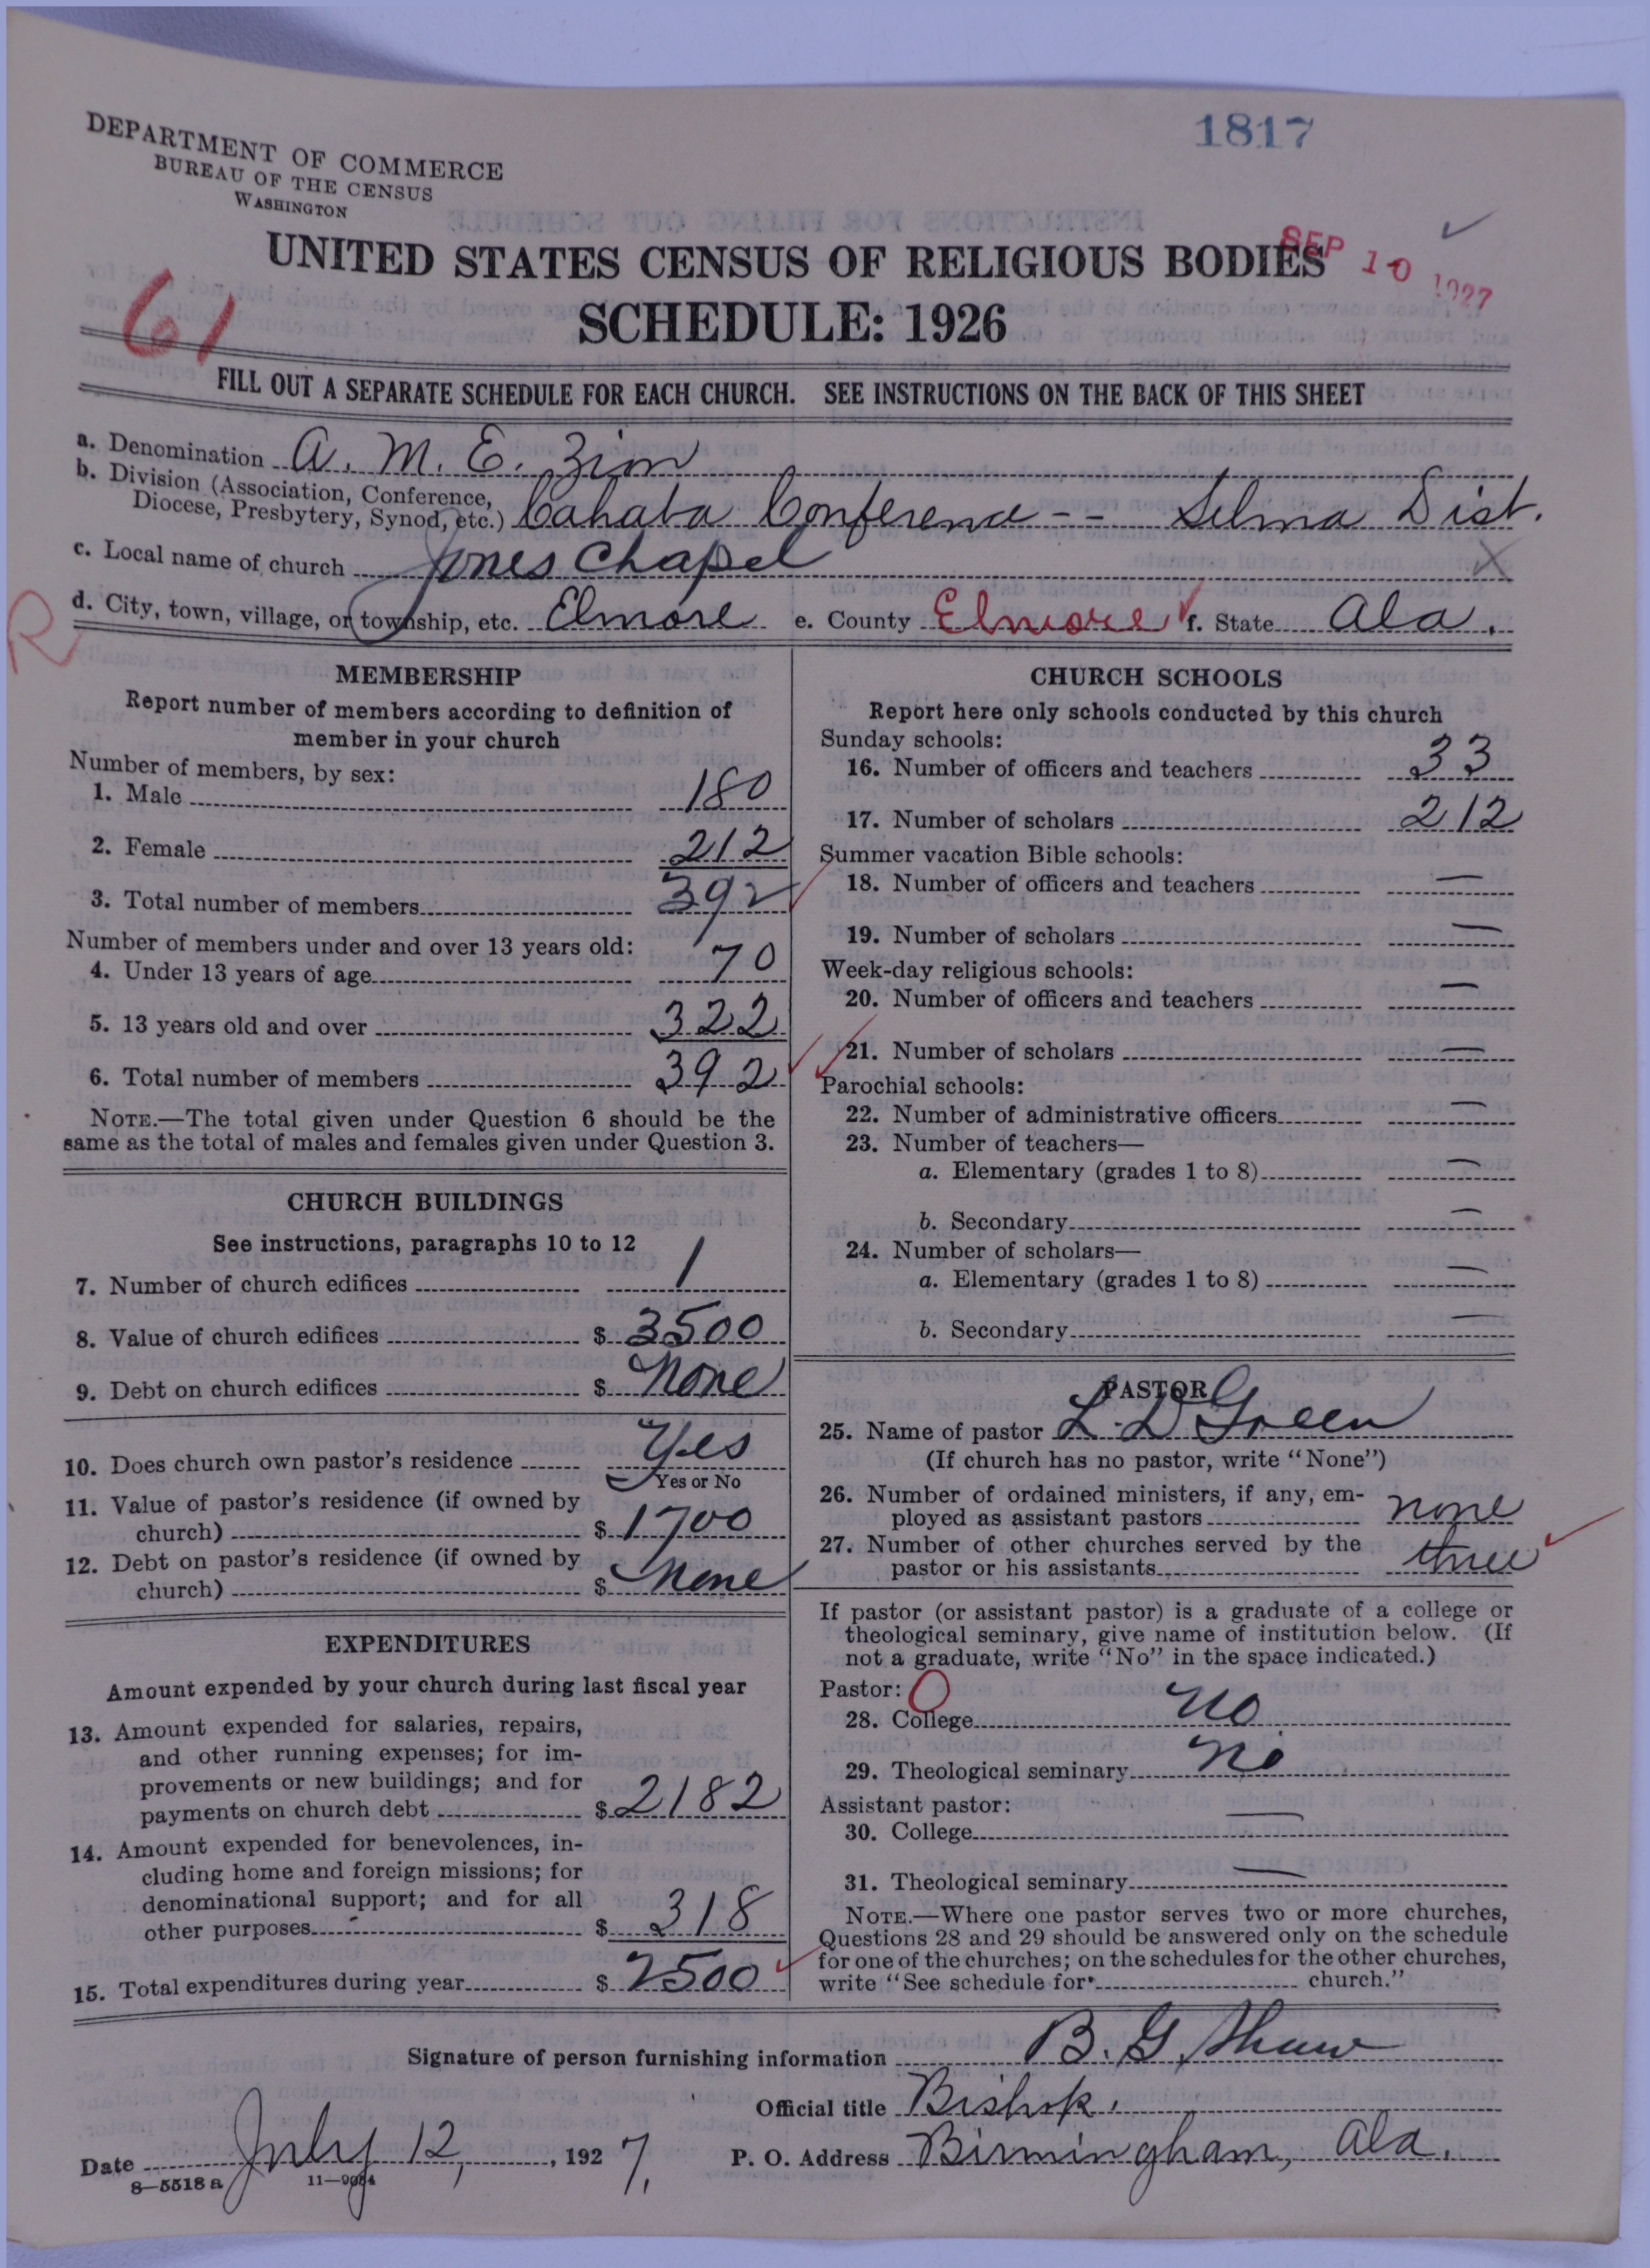 1817
DEPARTMENT OF COMMERCE
BUREAU OF THE CENSUS
WASHINGTON
SEP 10 1927
UNITED STATES CENSUS OF RELIGIOUS BODIES
SCHEDULE: 1926
61
FILL OUT A SEPARATE SCHEDULE FOR EACH CHURCH. SEE INSTRUCTIONS ON THE BACK OF THIS SHEET
a. Denomination A. M. E. Zion
b. Division (Association, Conference,
Diocese, Presbytery, Synod, etc.) Cahaba Conference -- Selma Dist.
c. Local name of church Jones Chapel X
R
d. City, town, village, or township, etc. Elmore e. County Elmore f. State Ala.
MEMBERSHIP
Report number of members according to definition of
member in your church
Number of members, by sex:
1. Male 180
2. Female 212
3. Total number of members 392
Number of members under and over 13 years old:
4. Under 13 years of age 70
5. 13 years old and over 322
6. Total number of members 392
NOTE.—The total given under Question 6 should be the
same as the total of males and females given under Question 3.
CHURCH BUILDINGS
See instructions, paragraphs 10 to 12
7. Number of church edifices 1
8. Value of church edifices $ 3500
9. Debt on church edifices $ None
10. Does church own pastor's residence Yes
Yes or No
11. Value of pastor's residence (if owned by
church) $ 1700
12. Debt on pastor's residence (if owned by
church) $ None
EXPENDITURES
Amount expended by your church during last fiscal year
13. Amount expended for salaries, repairs,
and other running expenses; for im-
provements or new buildings; and for
payments on church debt $ 2182
14. Amount expended for benevolences, in-
cluding home and foreign missions; for
denominational support; and for all
other purposes $ 318
15. Total expenditures during year $ 2500
CHURCH SCHOOLS
Report here only schools conducted by this church
Sunday schools:
16. Number of officers and teachers 33
17. Number of scholars 212
Summer vacation Bible schools:
18. Number of officers and teachers —
19. Number of scholars —
Week-day religious schools:
20. Number of officers and teachers —
21. Number of scholars —
Parochial schools:
22. Number of administrative officers —
23. Number of teachers—
a. Elementary (grades 1 to 8) —
b. Secondary —
24. Number of scholars—
a. Elementary (grades 1 to 8) —
b. Secondary —
PASTOR
25. Name of pastor L. D Green
(If church has no pastor, write "None")
26. Number of ordained ministers, if any, em-
ployed as assistant pastors none
27. Number of other churches served by the
pastor or his assistants three
If pastor (or assistant pastor) is a graduate of a college or
theological seminary, give name of institution below. (If
not a graduate, write "No" in the space indicated.)
Pastor: 0
28. College no
29. Theological seminary no
Assistant pastor:
30. College —
31. Theological seminary —
NOTE.—Where one pastor serves two or more churches,
Questions 28 and 29 should be answered only on the schedule
for one of the churches; on the schedules for the other churches,
write "See schedule for church."
Signature of person furnishing information B. G. Shaw
Official title Bishop.
Date July 12, 1927. P. O. Address Birmingham, Ala.
8—5518 a 11—9084